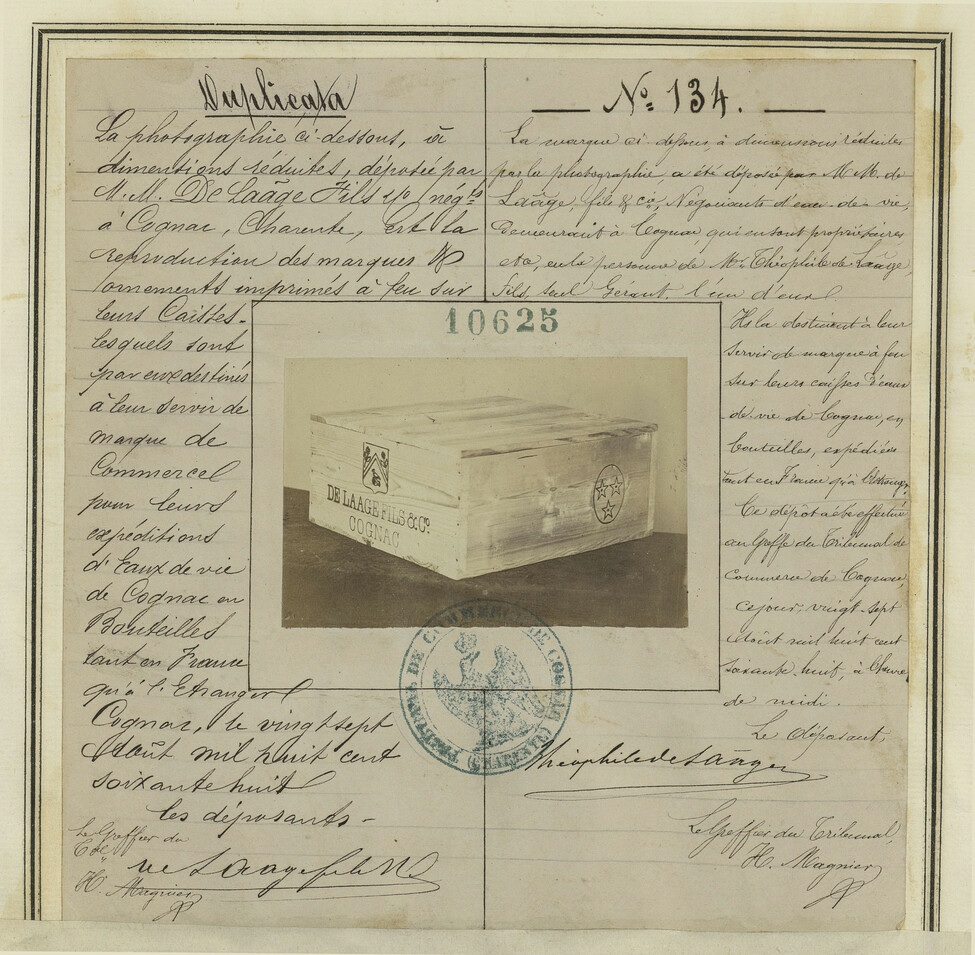 Duplicata
La photographie ci-dessous, à
dimentions réduites, déposée par
M.M. De Laâge Fils & Co négts
à Cognac, Charente, est la
reproduction des marques &
ornements imprimés à feu sur
leurs Caisses.
lesquels sont
par eux destinés
à leur servir de
marque de
Commerce
pour leurs
expéditions
d'Eaux de vie
de Cognac en
Bouteilles
tant en France
qu'à l'Etranger
Cognac, le vingt sept
Août mil huit cent
soixante huit
les déposants -
Le Greffier du
de Laage fils & Co
H. Magnier
No 134.
La marque ci-dessus, à dimensions réduites
par la photographie, a été déposée par M M. de
Laâge, fils & cie, Négociants d'eau-de-vie,
Demeurant à Cognac, qui en sont propriétaires
en la personne de Mr Théophile de Laâge,
fils, seul Gérant, l'un d'eux.
Ils la destinent à leur
servir de marque à feu
sur leurs caisses d'eaux
de vie de Cognac, en
bouteilles, expédiées
tant en France qu'à l'étranger.
Ce dépôt a été effectué
au Greffe du Tribunal de
Commerce de Cognac,
ce jour, vingt-sept
Août mil huit cent
soixante huit, à l'heure
de midi.
Le déposant
Théophile de Laâge
Le Greffier du Tribunal,
H. Magnier
10625
DE LAAGE FILS & Co.
COGNAC
TRIBUNAL DE COMMERCE DE COGNAC (CHARENTE)